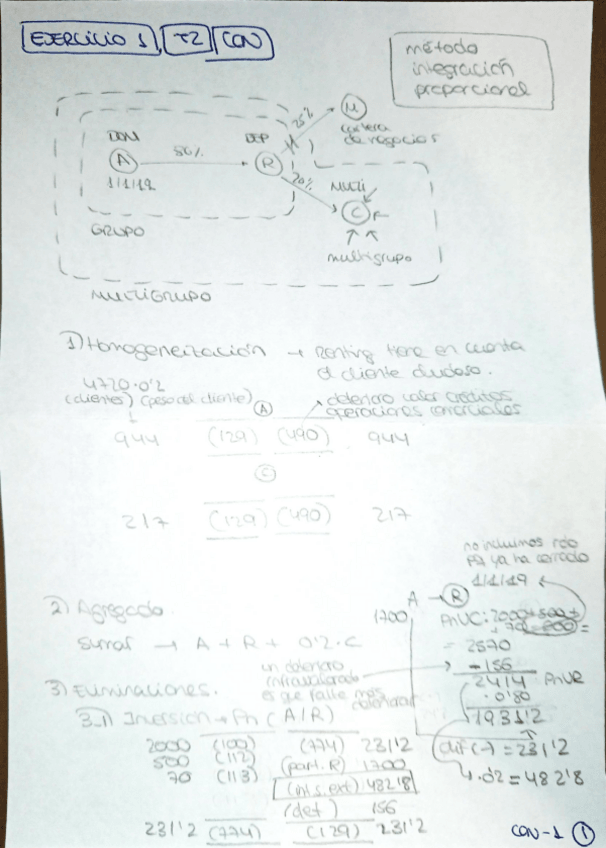 EJERCICIO 1, T2 CON
método
integración
proporcional
DOM
A
1/1/19
DEP
R
25%
M
cartera
de negocios
20%
MULTI
C
multigrupo
GRUPO
MULTIGRUPO
1) Homogeneización → Renting tiene en cuenta
el cliente dudoso.
4720·0'2
(clientes) (peso del cliente)
A
deterioro valor créditos
operaciones comerciales
944 (129) (490) 944
C
217 (129) (490) 217
2) Agregado.
Sumar → A + R + 0'2·C
3) Eliminaciones.
3.1) Inversión → PN (A/R)
2000 (100) (774) 231'2
500 (112) (part. R) 1700
70 (113) (int s. ext) 482'8
(det) 156
231'2 (774) (129) 231'2
no incluimos rdo
ya ha cerrado
1/1/19
A → R
1700
PNVC: 2000+500+
= 2570
- 156
2414 PNVR
·0'80
1931'2
dif (-) = 231'2
·02 = 482'8
un deterioro
infravalorado
es que falte más
CON-1 1